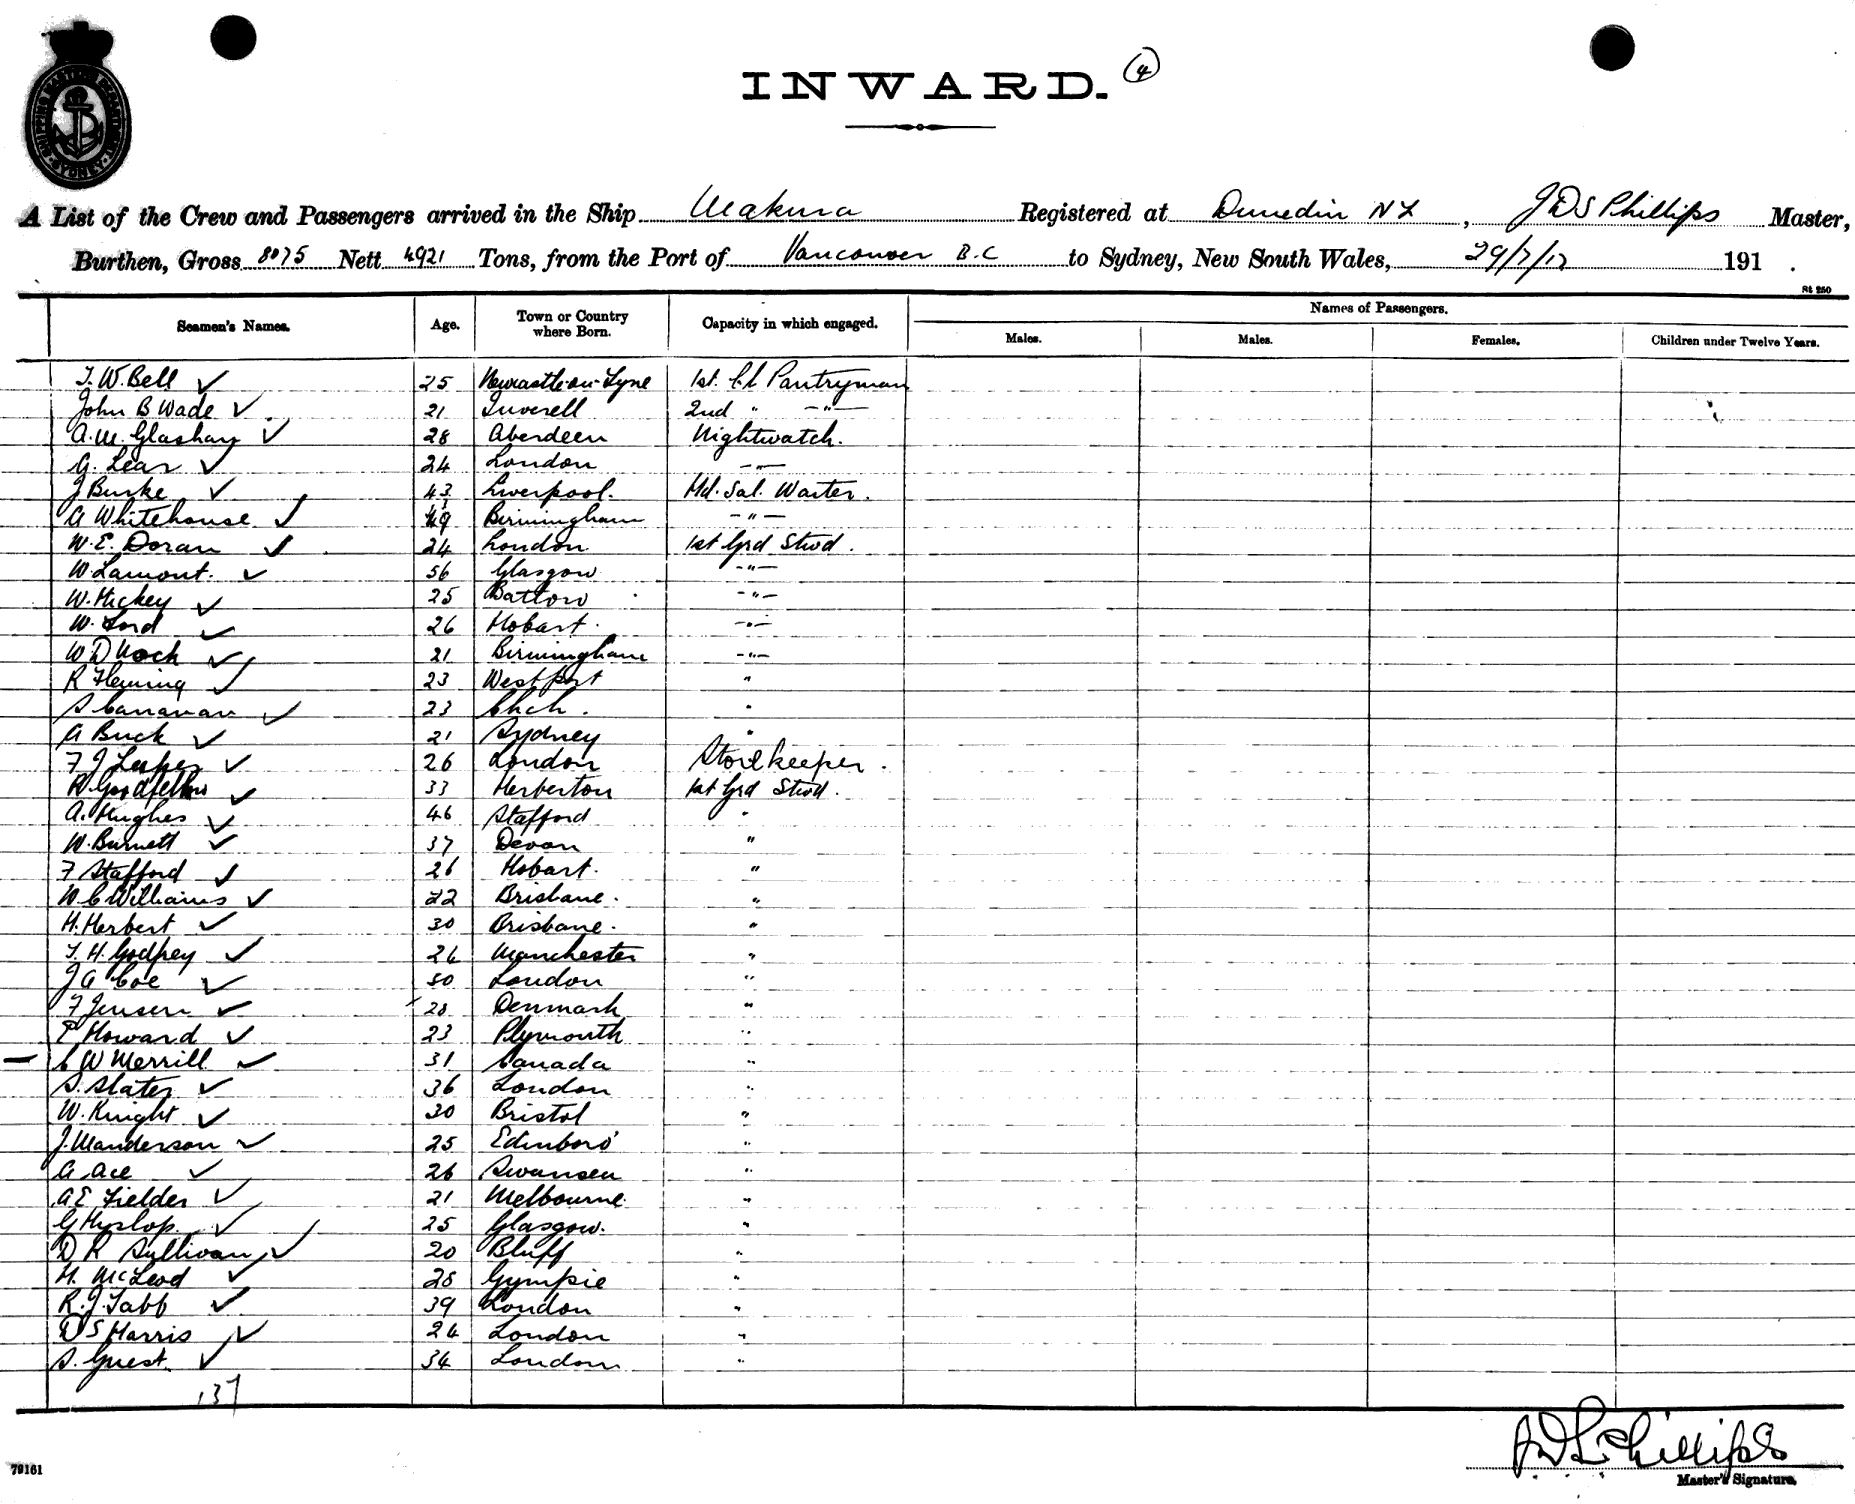 SHIPPING MASTERS DEPARTMENT SYDNEY
INWARD. 4
A List of the Crew and Passengers arrived in the Ship Makura Registered at Dunedin NZ, J D S Phillips Master,
Burthen, Gross 8075 Nett 4921 Tons, from the Port of Vancouver B.C to Sydney, New South Wales, 29/7/12 191 .
St 250
Seamen's Names. Age. Town or Country where Born. Capacity in which engaged. Names of Passengers.
Males. Males. Females. Children under Twelve Years.
T. W. Bell ✓ 25 Newcastle-on-Tyne 1st. Pantryman
John B Wade ✓ 21 Inverell 2nd " -"-
A. M. Glashan ✓ 28 Aberdeen Nightwatch.
G. Lear ✓ 24 London -"-
J Burke ✓ 43 Liverpool. Hd. Sal. Waiter.
A Whitehouse ✓ 49 Birmingham -"-
W. E. Doran ✓ 24 London 1st Grd Stwd.
W. Lamont. ✓ 56 Glasgow -"-
W. Hickey ✓ 25 Batlow -"-
W. Lord ✓ 26 Hobart. -"-
W D Nock ✓ 21 Birmingham -"-
R Fleming ✓ 23 Westport "
S Canavan ✓ 23 Chch. "
A Buck ✓ 21 Sydney "
F J ✓ 26 London Storekeeper.
R. Goodfellow ✓ 33 Herberton 1st Grd Stwd.
A. Hughes ✓ 46 Stafford "
W. Burnett ✓ 37 Devon "
F Stafford ✓ 26 Hobart. "
W C Williams ✓ 22 Brisbane. "
H. Herbert ✓ 30 Brisbane. "
T. H. Godfrey ✓ 24 Manchester "
J A Coe ✓ 30 London "
F Jensen ✓ 28 Denmark "
E Howard ✓ 23 Plymouth "
C W Merrill ✓ 31 Canada "
S. Slater ✓ 36 London "
W. Knight ✓ 30 Bristol "
J. Manderson ✓ 25 Edinboro' "
A Ace ✓ 26 Swansea "
A E Fielder ✓ 21 Melbourne. "
G Hyslop. ✓ 25 Glasgow. "
D R Sullivan ✓ 20 Bluff "
H. McLeod ✓ 28 Gympie "
R. J. Tabb ✓ 39 London "
D S Harris ✓ 24 London "
S. Guest. ✓ 34 London "
137
J D S Phillips
Master's Signature.
79161